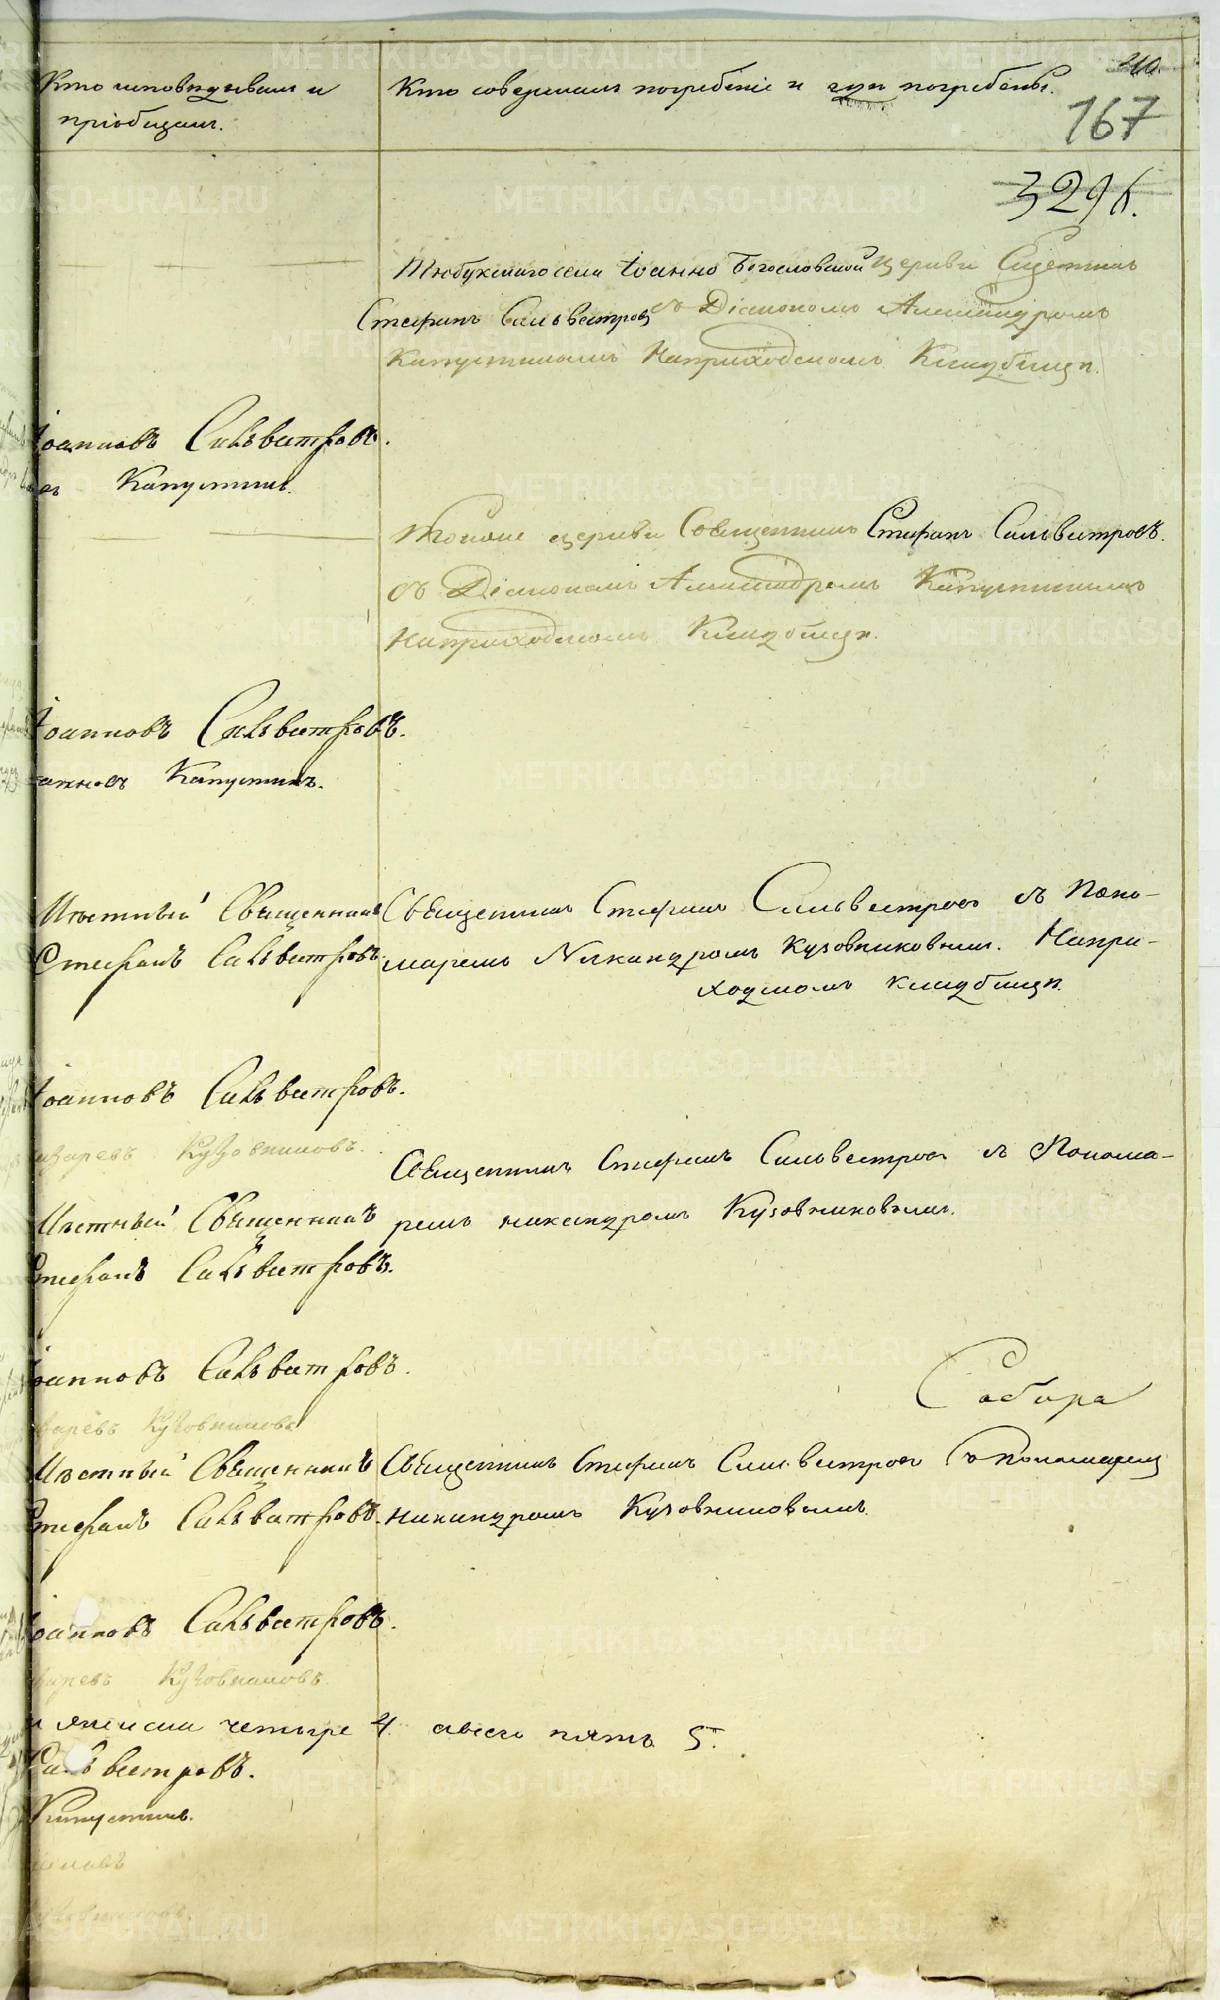 Кто исповѣдывалъ и
пріобщалъ.
Кто совершалъ погребеніе и гдѣ погребены.
210.
167
3296.
Тюбукскаго села Іоанно Богословской церкви Священникъ
Стефанъ Сильвестровъ съ Діакономъ Александромъ
Капустинымъ На приходскомъ Кладбищѣ.
Іоанновъ Сильвестровъ.
Капустинъ.
Тояже церкви Священникъ Стефанъ Сильвестровъ.
съ Діакономъ Александромъ Капустинымъ
На приходскомъ Кладбищѣ.
Іоанновъ Сильвестровъ.
Капустинъ.
Мѣстный Священникъ
Стефанъ Сильвестровъ.
Священникъ Стефанъ Сильвестровъ съ Поно-
маремъ Никандромъ Кузовниковымъ. На при-
ходскомъ кладбищѣ.
Іоанновъ Сильвестровъ.
Кузовниковъ.
Священникъ Стефанъ Сильвестровъ съ Понома-
ремъ никандромъ Кузовниковымъ.
Мѣстный Священникъ
Стефанъ Сильвестровъ.
Іоанновъ Сильвестровъ.
Кузовниковъ
Собора
Мѣстный Священникъ
Стефанъ Сильвестровъ.
Священникъ Стефанъ Сильвестровъ съ Пономаремъ
никандромъ Кузовниковымъ.
Іоанновъ Сильвестровъ.
Кузовниковъ.
четыре 4. а всего пять 5.
Сильвестровъ.
Капустинъ.
METRIKI.GASO-URAL.RU